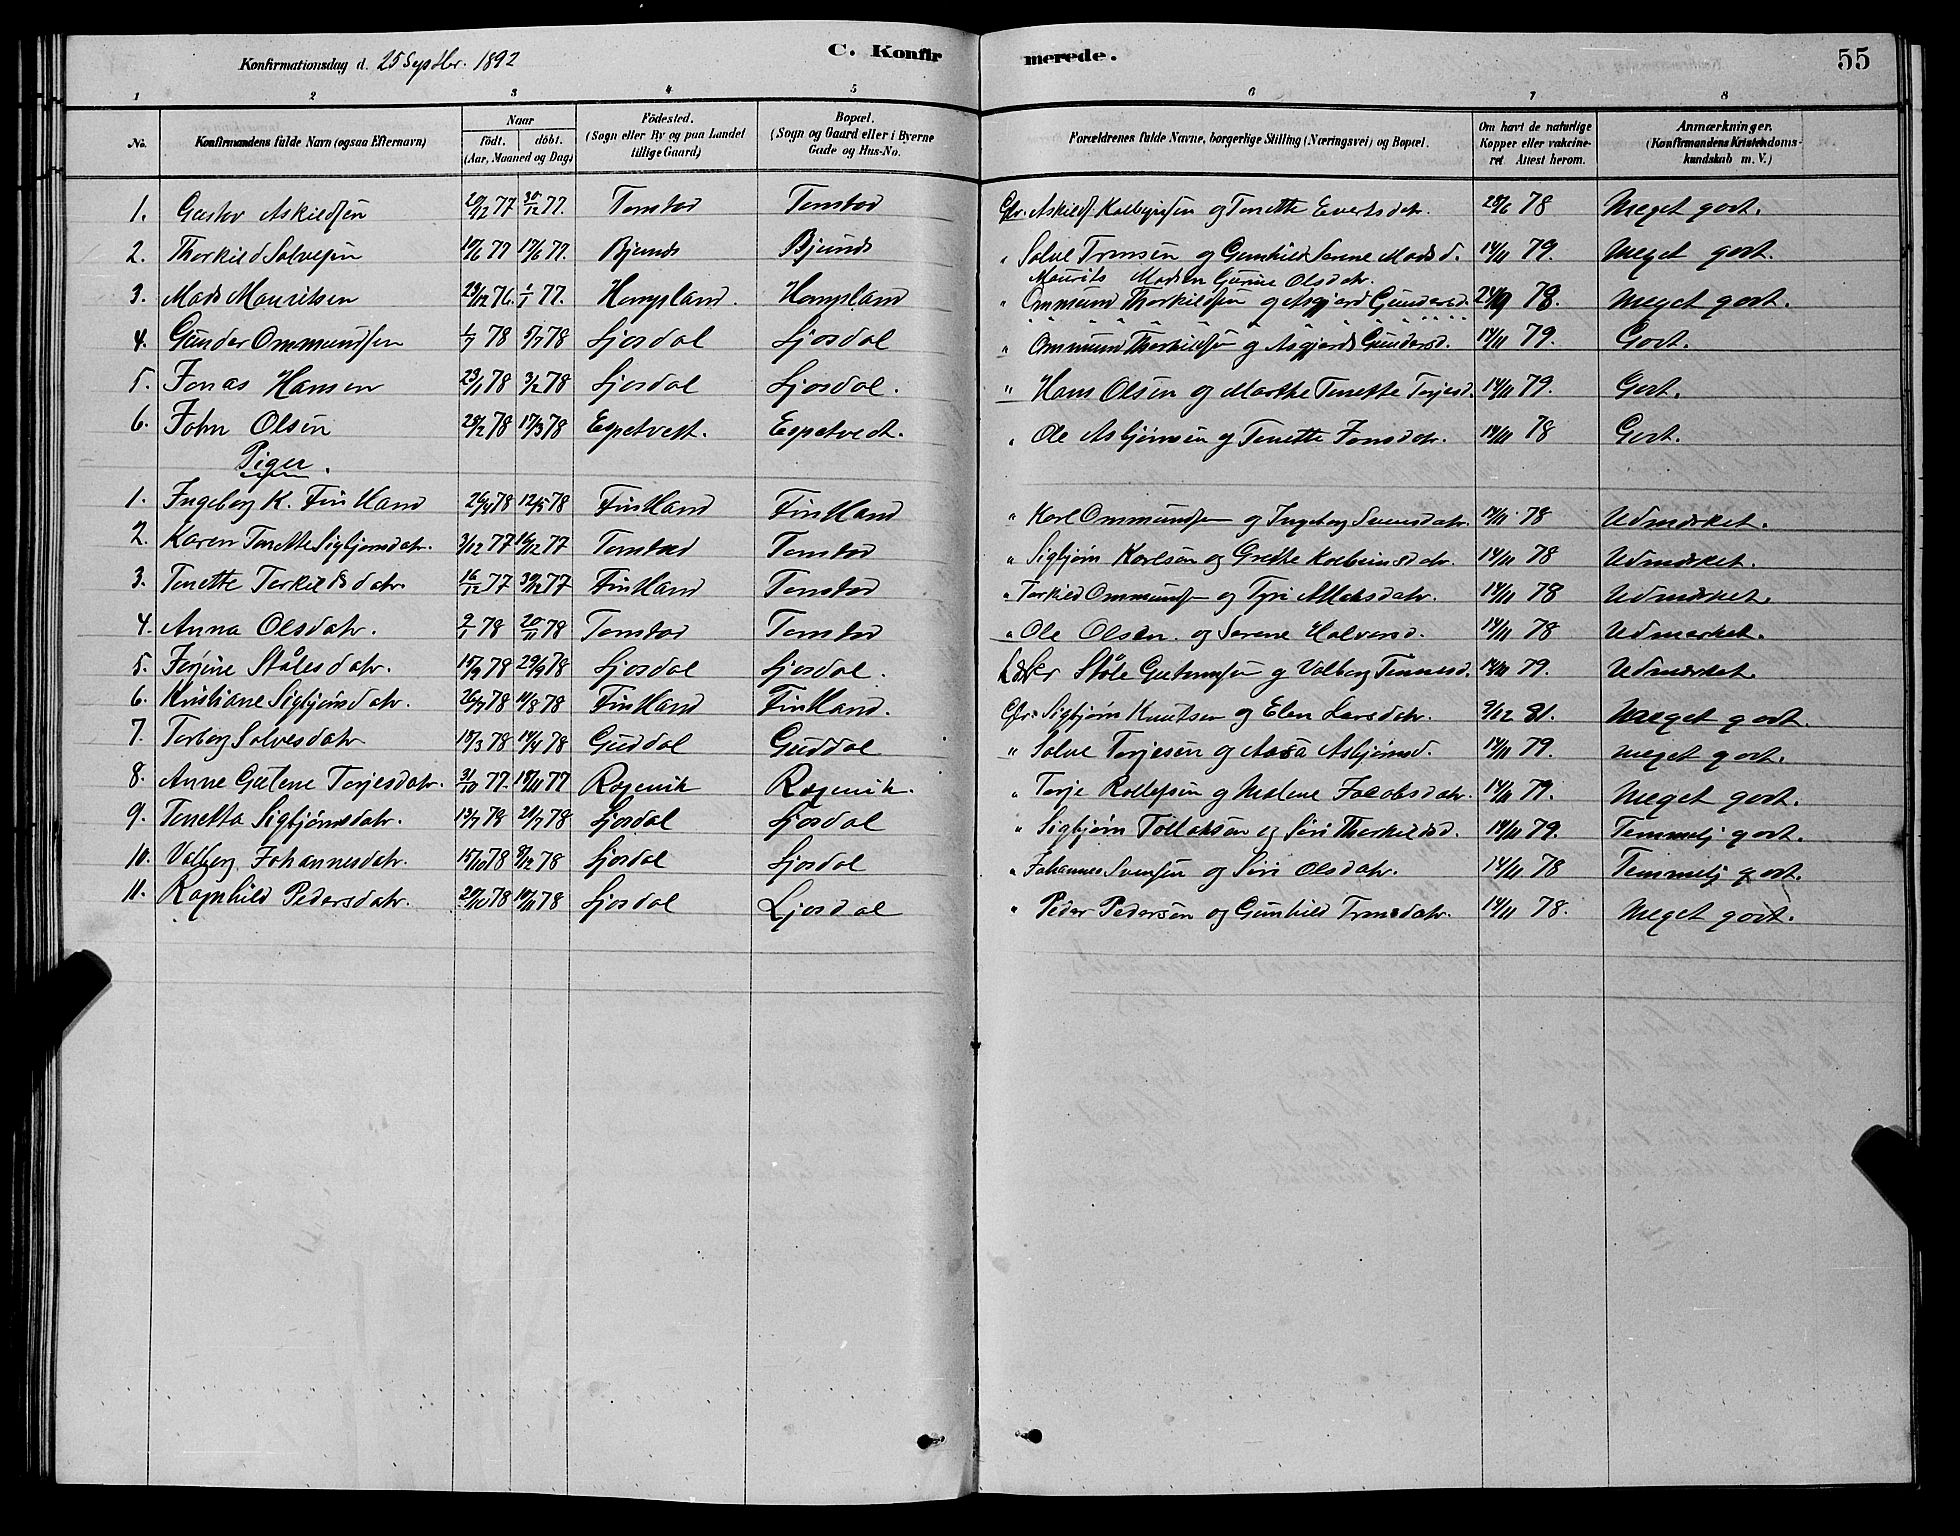 Konfirmationsdag d. 25 Septbr. 1892
C. Konfir merede. 55
1 2 3 4 5 6 7 8
No. Konfirmandens fulde Navn (ogsaa Efternavn) Naar födt. döbt. (Aar, Maaned og Dag) Födested. (Sogn eller By og paa Landet tillige Gaard) Bopæl. (Sogn og Gaard eller i Byerne Gade og Hus-No. Forældrenes fulde Navne, borgerlige Stilling (Næringsvei) og Bopæl. Om havt de naturlige Kopper eller vakcineret. Attest herom. Anmærkninger. (Konfirmandens Kristendomskundskab m. V.)
1. Gustav Askildsen 20/12 77 30/12 77. Tonstad Tonstad Gbr. Askild Kolbeinsen og Tonette Evertsdatr. 28/6 78 Meget godt.
2. Thorkild Solvesen 10/6 77 17/6 77. Bjunds Bjunds " Solve Tronsen og Gunhild Serene Madsd. 14/11 79. Meget godt.
Maurits Madsen Gurine Olsdatr.
3. Mads Mauritsen 23/12 76. 1/1 77. Hompland. Hompland " Ommund Thorkildsen og Asgjerd Gundersd. 24/9 78. Meget godt.
4. Gunder Ommundsen 1/7 78 5/7 78 Josdal Josdal " Ommund Thorkildsen og Asgjerd Gundersd. 14/11 79. Godt.
5. Jonas Hansen 23/1 78 3/2 78 Josdal Josdal. " Hans Olsen og Marthe Tonette Torjesd. 14/11 79. Godt.
6. John Olsen 28/2 78 17/3 78 Espetvedt. Espetvedt. " Ole Asbjørnsen og Tonette Jonsdatr. 14/11 78 Godt.
Piger.
1. Ingeborg K. Finsland 26/4 78 12/5 78 Finsland Finsland " Karl Ommundsen og Ingeborg Sennesdatr. 14/11 78 Udmærket.
2. Karen Tonette Sigbjørnsdatr. 3/12 77 16/12 77 Tonstad Tonstad " Sigbjørn Karlsen og Grethe Kolbeinsdatr. 14/11 78 Udmærket.
3. Tonette Torkildsdatr 16/12 77 30/12 77 Finsland Tonstad " Torkild Ommundsen og Tyri Atlaksdatr. 14/11 78 Udmærket
4. Anna Olsdatr. 2/1 78 20/1 78 Tonstad Tonstad " Ole Olsen og Serene Halvorsd. 14/11 78 Udmærket.
5. Jorine Stålesdatr. 15/9 78 29/9 78 Josdal Josdal. Ståle Guttormsen og Valborg Tonnesd. 14/11 79. Udmærket
6. Kristiane Sigbjørnsdatr. 26/7 78 11/8 78 Finsland Finsland. Gbr. Sigbjørn Knutsen og Elen Larsdatr. 9/12 81. Meget godt.
7. Torborg Solvesdatr 18/3 78 14/4 78 Guddal Guddal " Solve Torjesen og Aasa Asbjørnsd. 14/11 79. Meget godt.
8. Anne Gurine Torjesdatr. 31/10 77. 18/11 77 Røgevik Røgevik. " Torje Rollefsen og Malene Jacobsdatr. 14/11 79. Meget godt.
9. Tonetta Sigbjørnsdatr. 13/7 78 21/7 78 Josdal Josdal " Sigbjørn Tollaksen og Siri Thorkildsd. 14/11 79. Temmelig godt.
10. Valborg Johannesdatr. 15/10 78 8/12 78 Josdal Josdal " Johannes Svensen og Siri Olsdatr. 14/11 78 Temmelig godt.
11. Ragnhild Pedersdatr. 20/10 78 10/11 78 Josdal Ljosdal " Peder Pedersen og Gunhild Tronsdatr. 14/11 78. Meget godt.